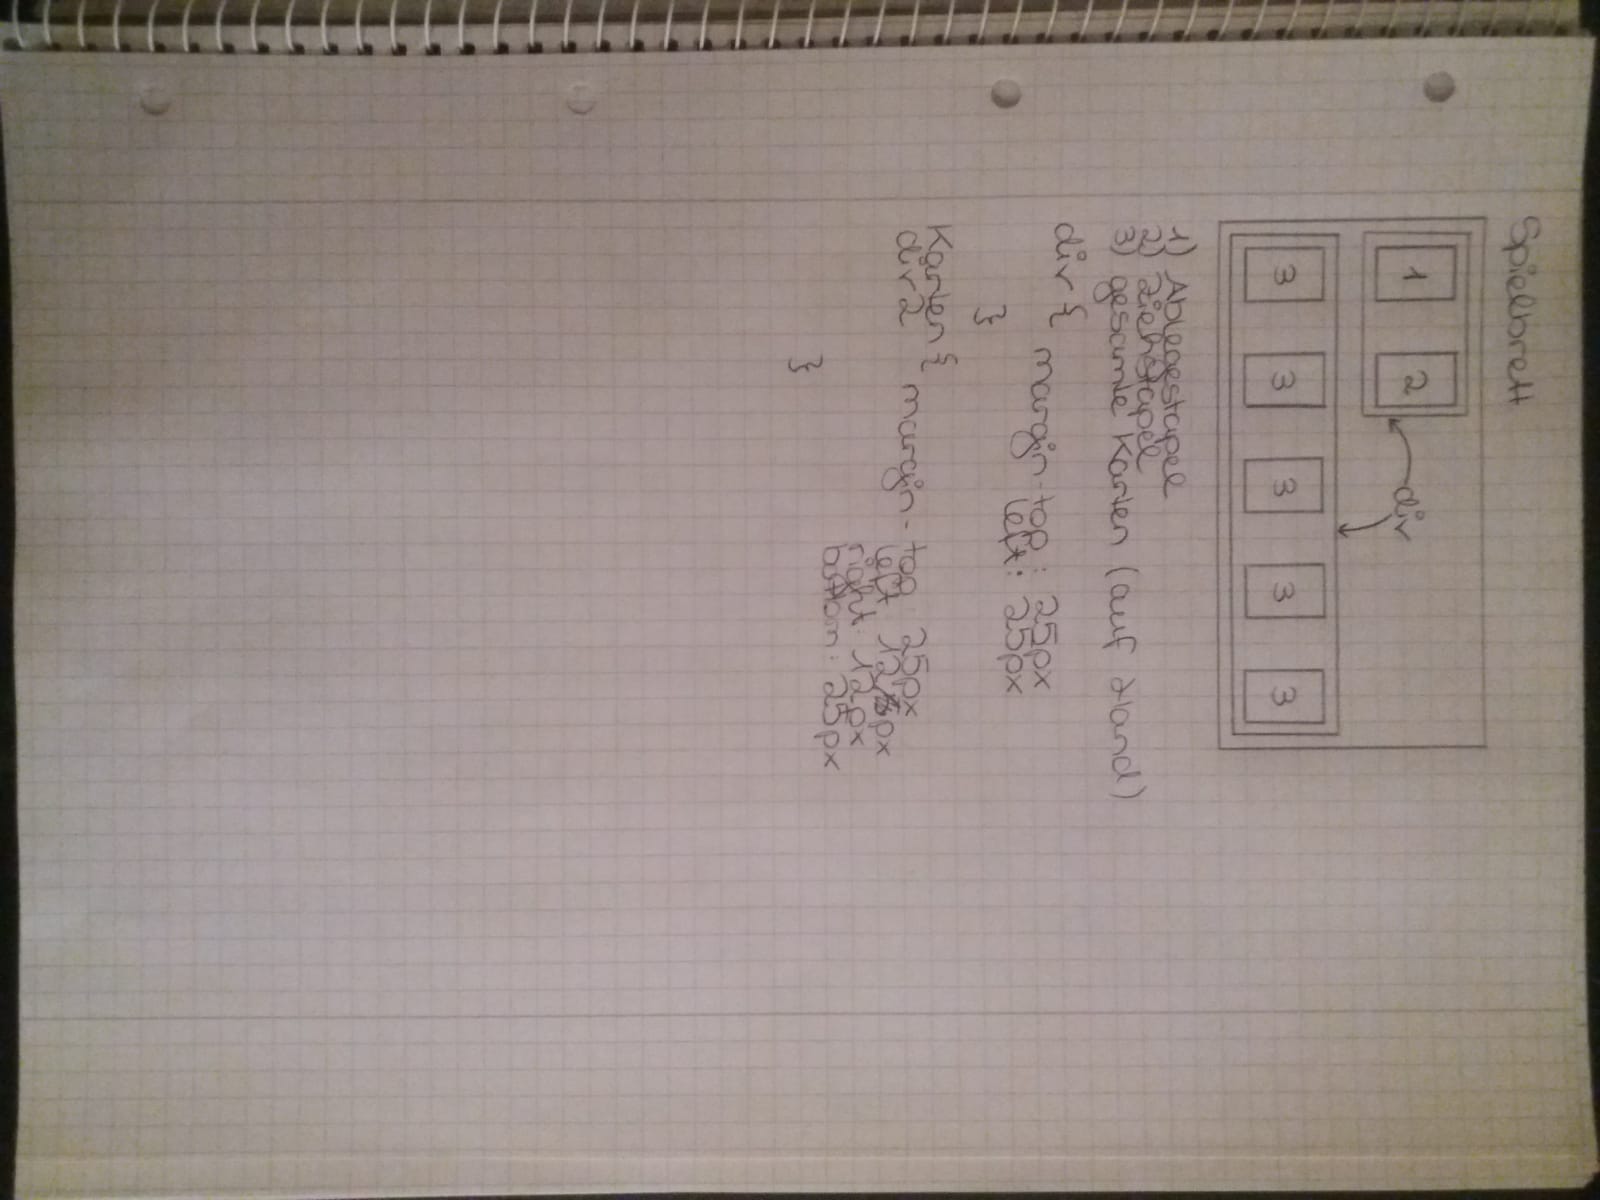 Spielbrett
1 2 div
3 3 3 3 3
1) Ablegestapel
2) Ziehstapel
3) gesamte Karten (auf Hand)
div {
margin-top: 25px
left: 25px
}
Karten {
div2 margin- top 25px
left 12px
right: 12px
bottom: 25px
}